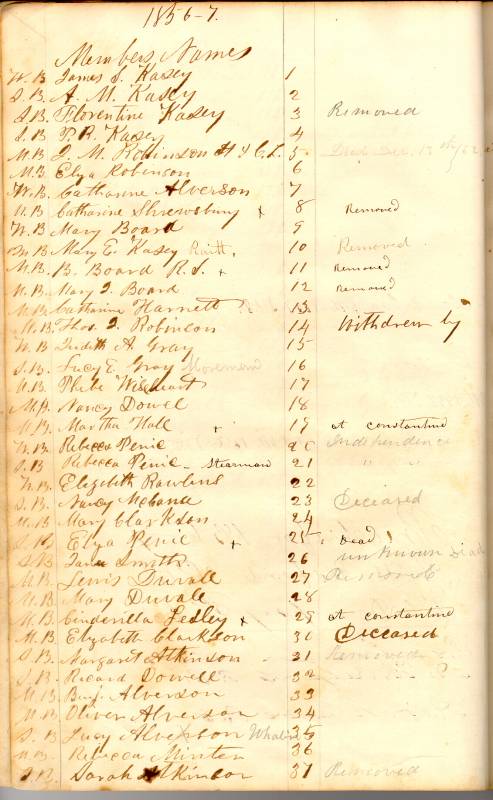 1856-7.
Members Names
W. B. James S. Kasey 1
S. B. A. M. Kasey 2
S. B. Florentine Kasey 3 Removed
S. B. T. R. Kasey 4
M. B. J. M. Robinson 5 Died Dec. 13th/62
M. B. Elza Robinson 6
W. B. Catharine Alverson 7
M. B. Catharine Shrewsbury x 8 Removed
W. B. Mary Board 9
M. B. Mary E. Kasey Raitt. 10 Removed
M. B. B. Board R. S. + 11 Removed
M. B. Mary J. Board 12 Removed
M. B. Catharine Harnett 13
M. B. Thos. J. Robinson 14 Withdrew by
W. B. Judith A. Gray 15
S. B. Lucy E. Gray Moreman 16
M. B. Phebe Wiseheart 17
M. B. Nancy Dowel 18
M. B. Martha Hall + 19 at constantine
W. B. Rebecca Penic 20 Independence
S. B. Rebecca Penic - Stearman 21 " "
W. B. Elezibeth Rawlins 22
S. B. Nancy 23 Deceased
M. B. Mary Clarkson 24
S. B. Elza Penic + 25 Dead
S. B. Jane Smith 26 unknown
M. B. Lewis Duvall 27 Removed
M. B. Mary Duvall 28
M. B. Cinderilla Lesley x 29 at constantine
M. B. Elyzabeth Clarkson 30 Deceased
S. B. Margaret Atkinson 31 Removed
S. B. Ricard Dowell 32
M. B. Benj. Alverson 33
M. B. Oliver Alverson 34
S. B. Lucy Alverson 35
M. B. Rebecca Minter 36
S. B. Sarah Atkinson 37 Removed